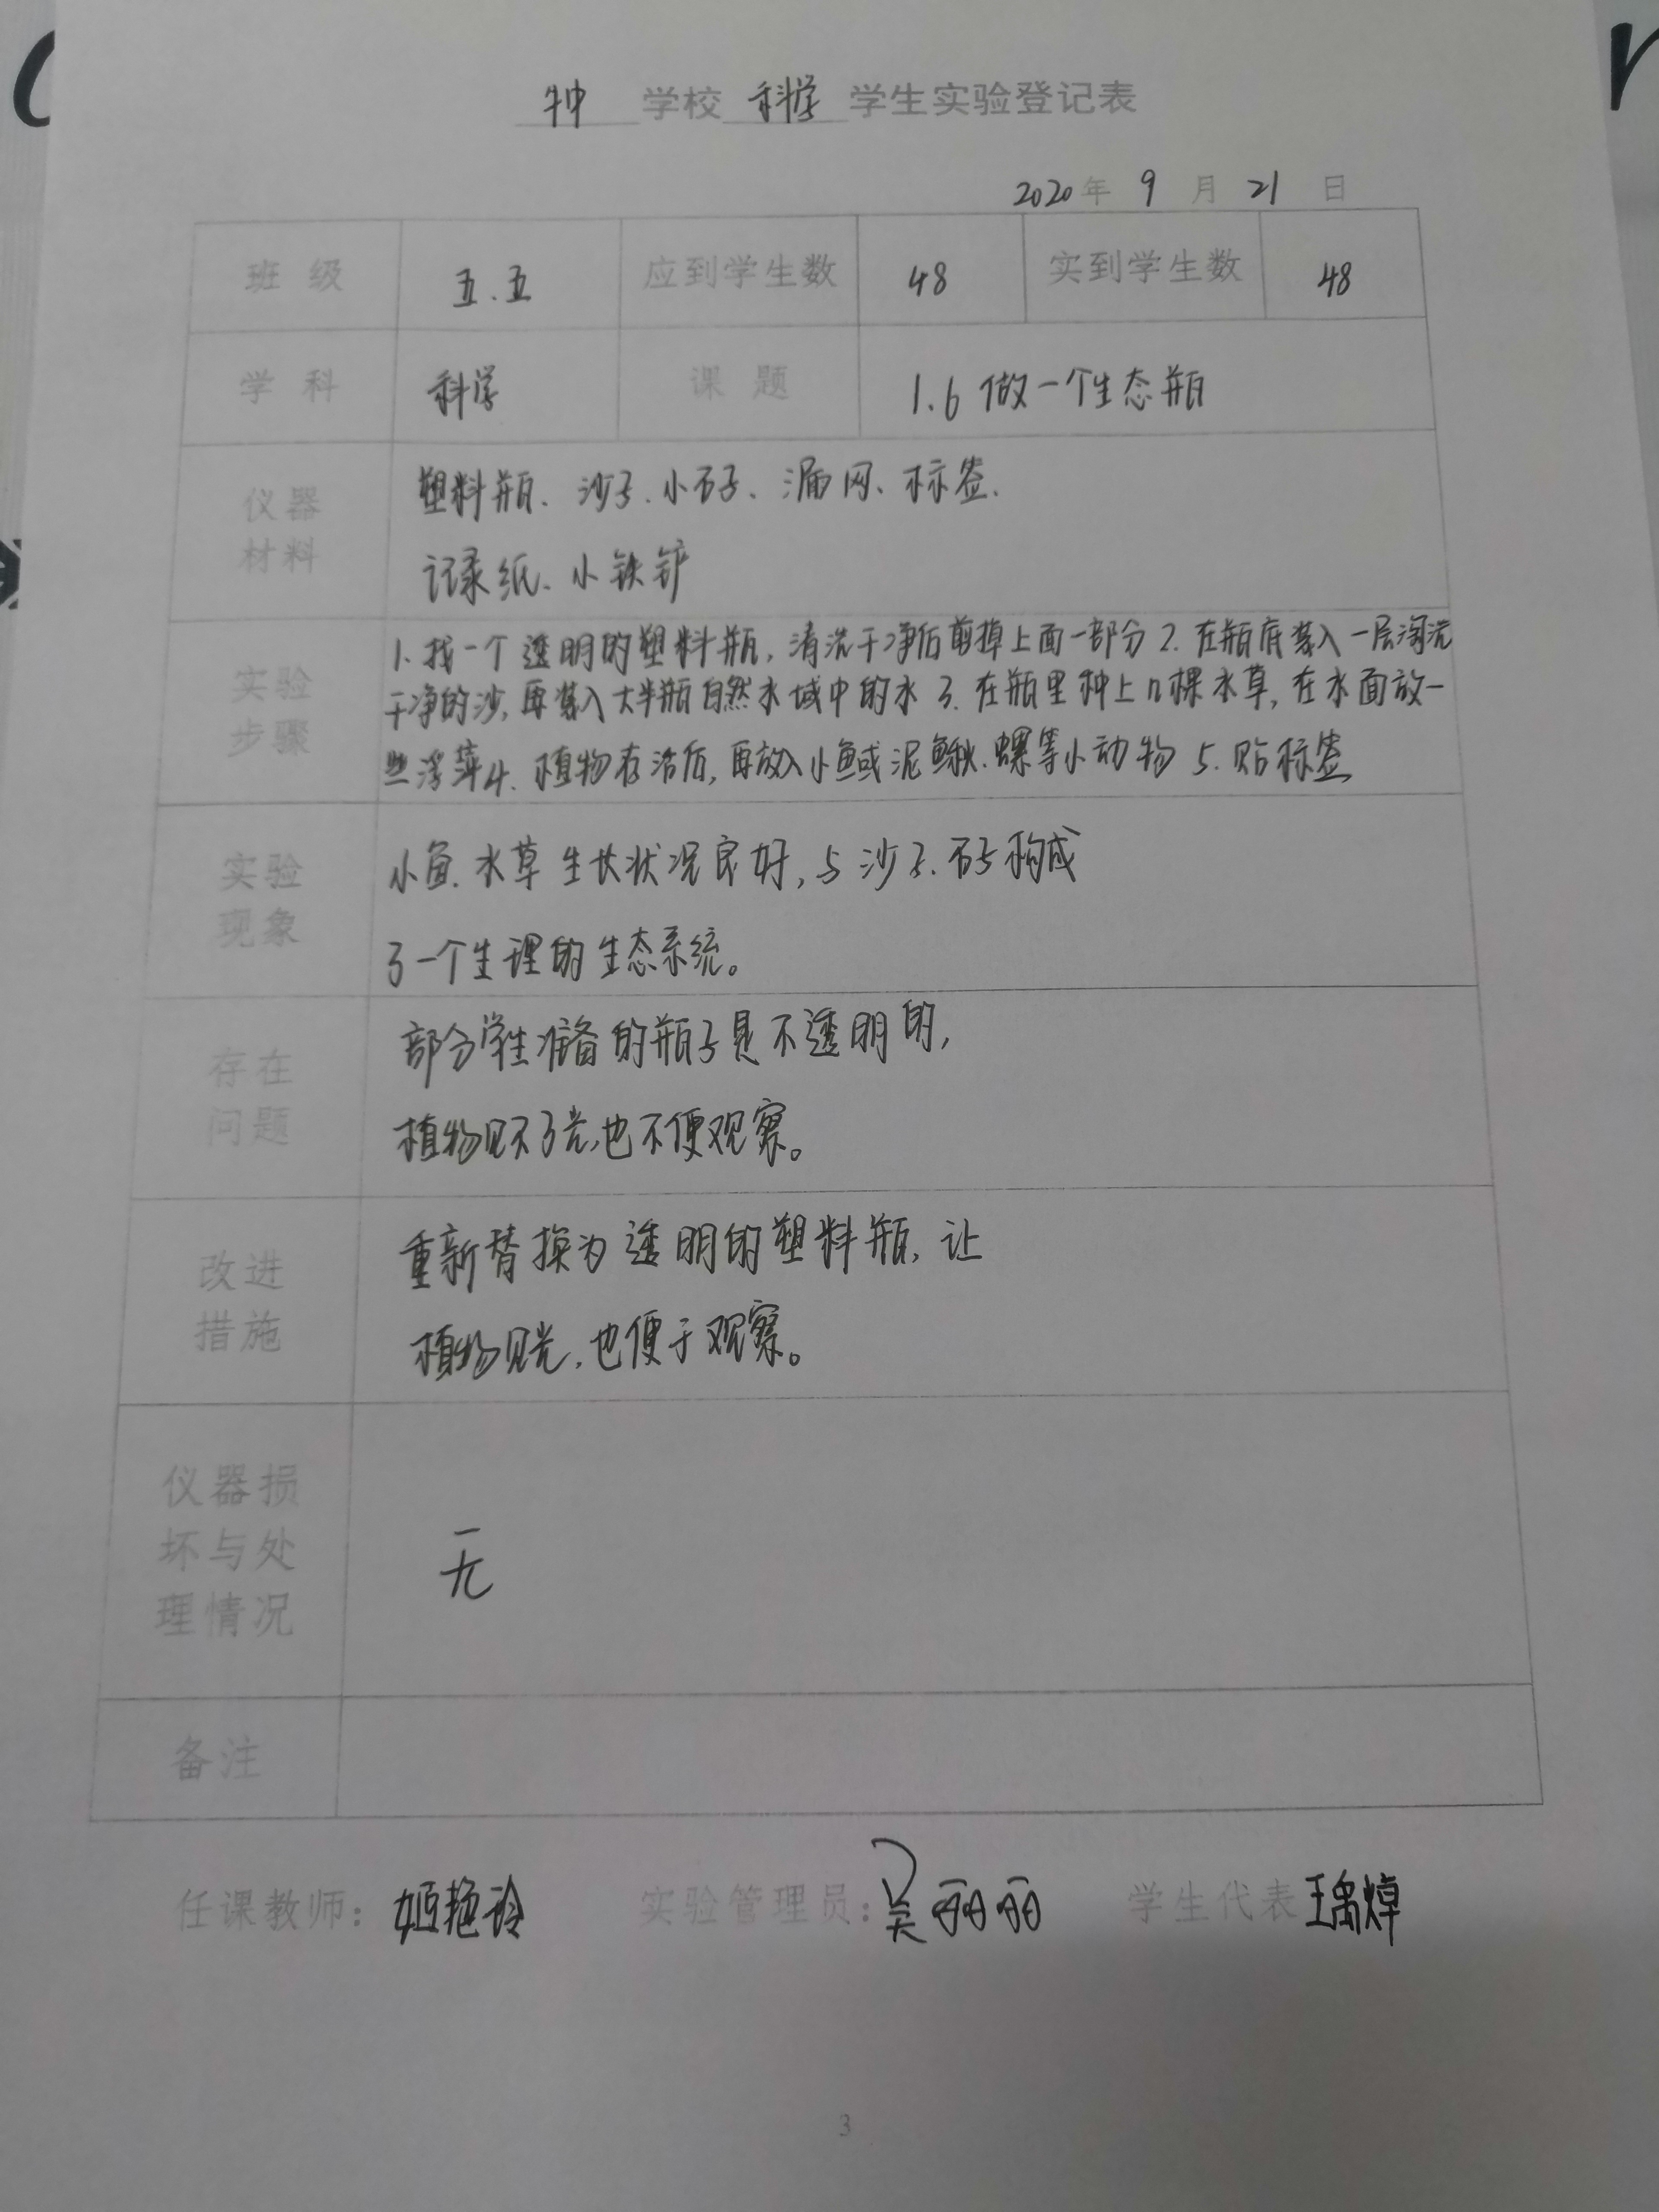 学校 科学 学生实验登记表
2020年 9 月 21 日
班 级 五.五 应到学生数 48 实到学生数 48
学 科 科学 课 题 1.6 做一个生态瓶
仪器
材料
塑料瓶、沙子、小石子、漏网、标签、
记录纸、小铁铲
实验
步骤
1. 找一个透明的塑料瓶,清洗干净后剪掉上面一部分 2. 在瓶底装入一层淘洗
干净的沙,再装入大半瓶自然水域中的水 3. 在瓶里种上几棵水草,在水面放一
些浮萍4. 植物存活后,再放入小鱼或泥鳅、螺等小动物 5. 贴标签
实验
现象
小鱼、水草生长状况良好,与沙子、石子构成
了一个生理的生态系统。
存在
问题
部分学生准备的瓶子是不透明的,
植物见不了光,也不便观察。
改进
措施
重新替换为透明的塑料瓶,让
植物见光,也便于观察。
仪器损
坏与处
理情况
无
备注
任课教师: 姬艳玲 实验管理员: 吴丽丽 学生代表 王禹焯
3